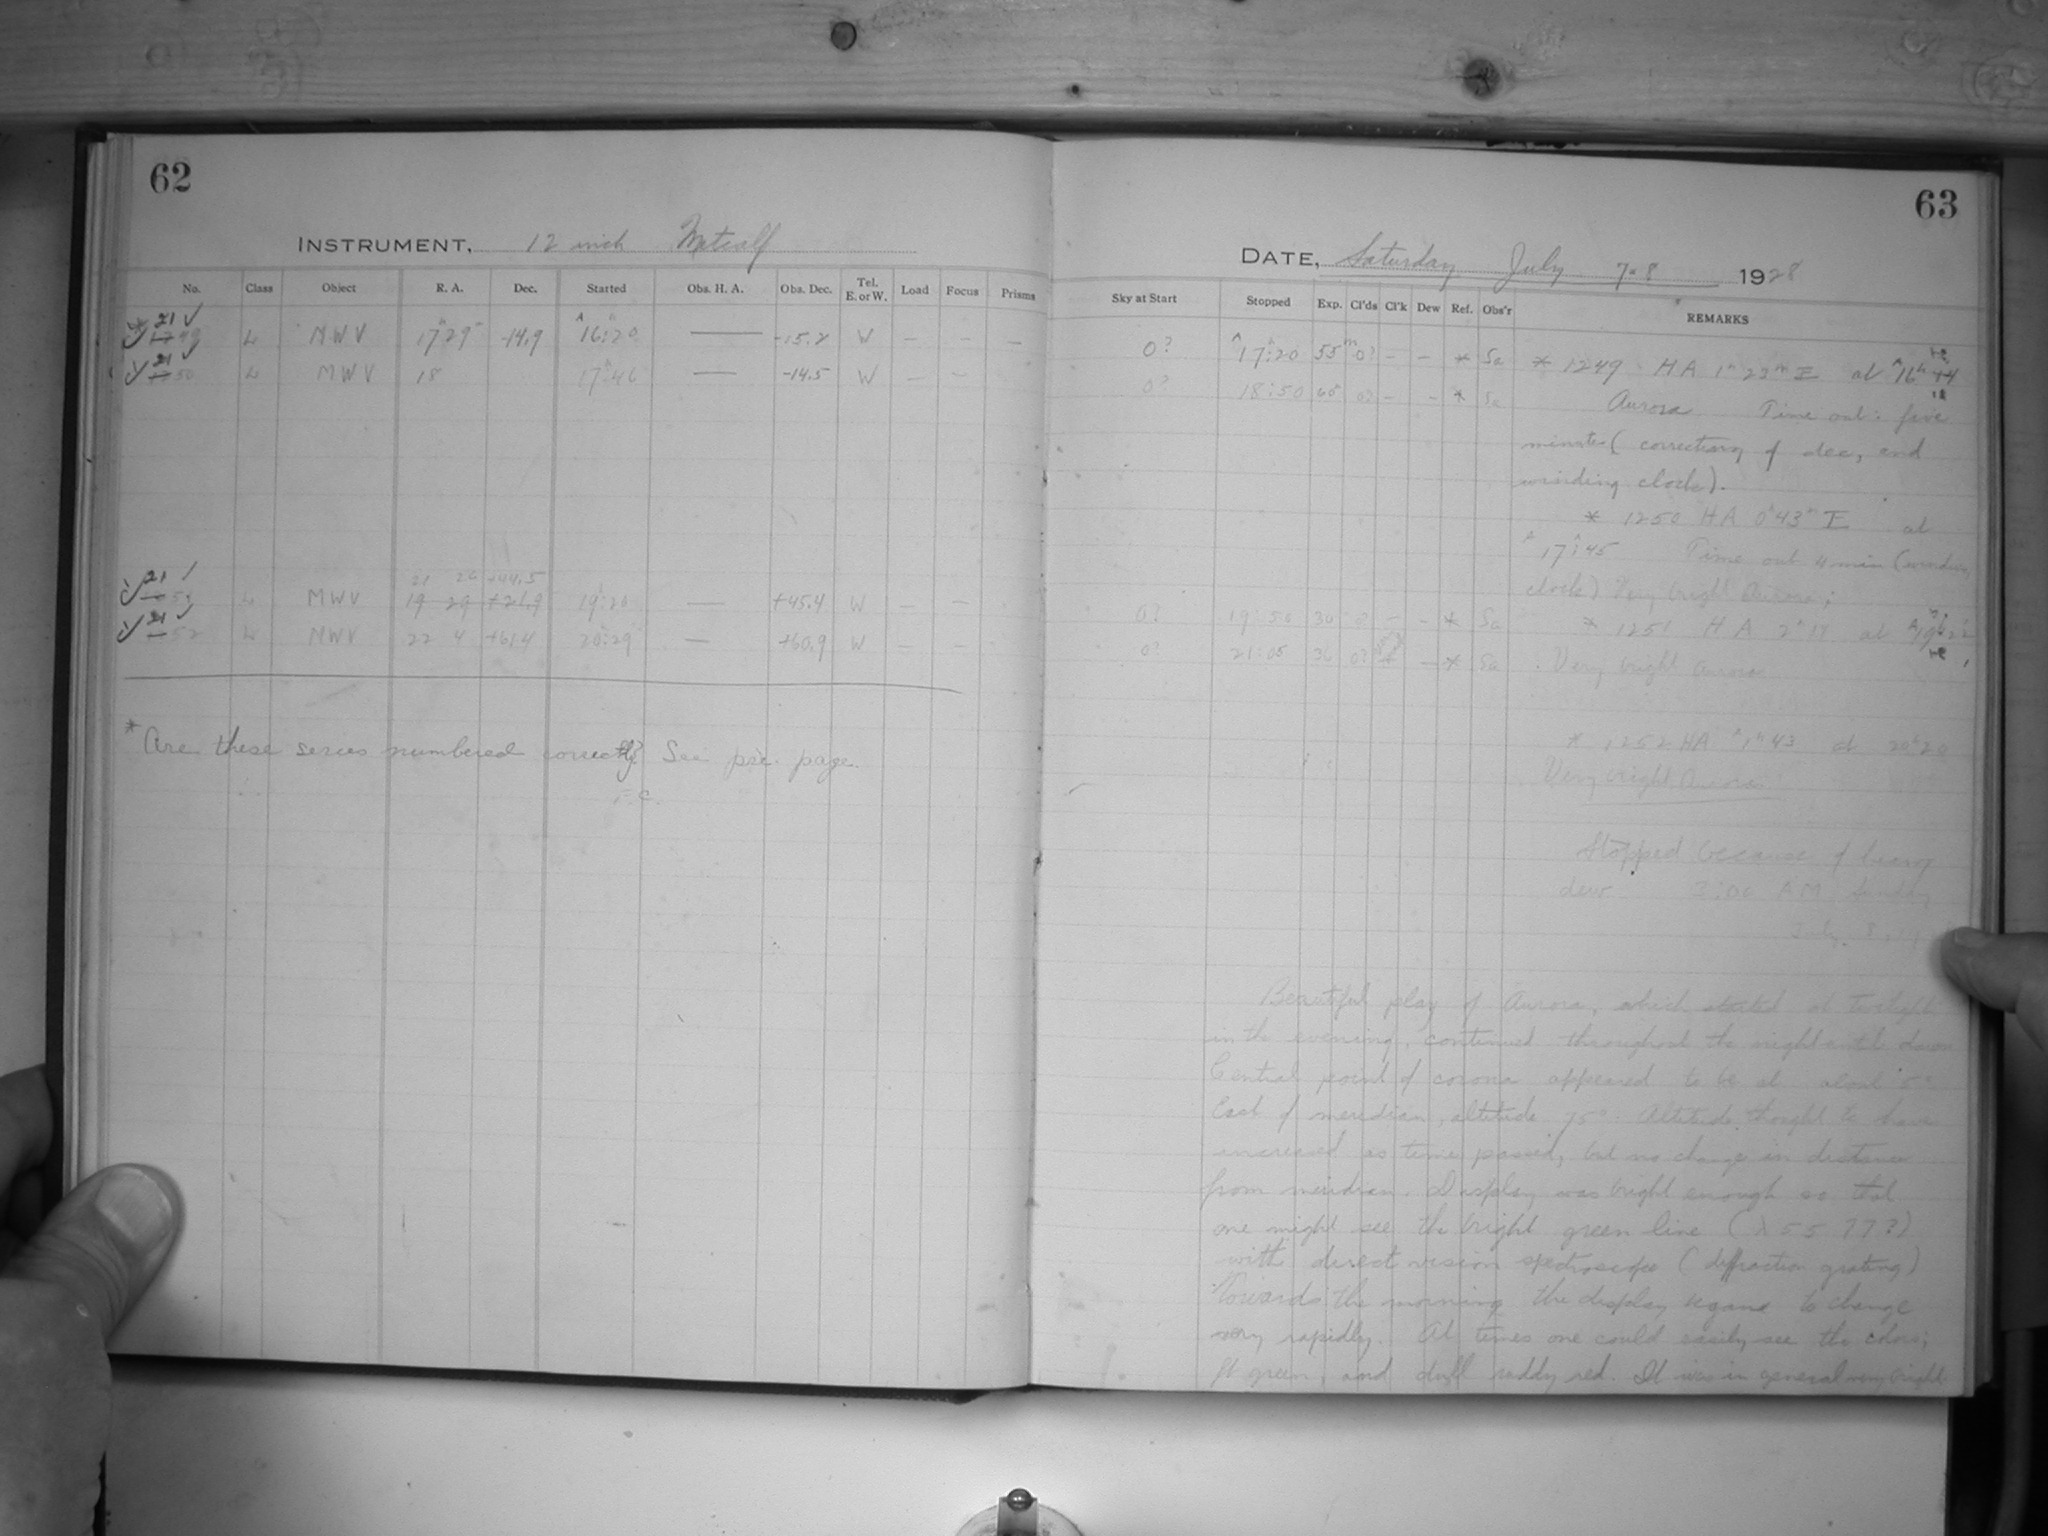 62
INSTRUMENT, 12 inch Metcalf
No. Class Object R. A. Dec. Started Obs. H. A. Obs. Dec. Tel. E. or W. Load Focus Prisms
21 49 L MWV 17 29 -14.9 16:20 — -15.2 W — — —
21 50 L MWV 18 17:46 — -14.5 W — —
21 20 +44.5
21 51 L MWV 19 29 +21.9 19:20 — +45.4 W — —
21 52 L MWV 22 4 +61.4 20:29 — +60.9 W — —
* Are these series numbered correctly? See pre. page.
F.C.
63
DATE, Saturday July 7-8 1928
Sky at Start Stopped Exp. Cl'ds Cl'k Dew Ref. Obs'r REMARKS
0? 17:20 55m 0? — — * Sa
0? 18:50 60 0? — — * Sa
0? 19:50 30 0? — — * Sa
0? 21:05 36 0? — * Sa
* 1249 HA 1h 23m E at 16h
Aurora Time out: five
minutes (correcting of dec, and
winding clock).
* 1250 HA 0h 43m E at
17:45 Time out 4 min (winding
clock) Very bright Aurora;
* 1251 HA 2h at
Very bright aurora
* 1252 HA 1h 43 at 20h 20
Very bright Aurora!
Stopped because of heavy
dew 3:00 AM Sunday
July 8
Beautiful play of Aurora, which started at twilight
in the evening, continued throughout the night until dawn
Central point of corona appeared to be at about 5°
East of meridian, altitude 75°. Altitude thought to have
increased as time passed, but no change in distance
from meridian. Display was bright enough so that
one might see the bright green line (λ 5577?)
with direct vision spectroscope (diffraction grating)
Towards the morning the display began to change
very rapidly. At times one could easily see the colors;
green, and dull ruddy red. It was in general very bright